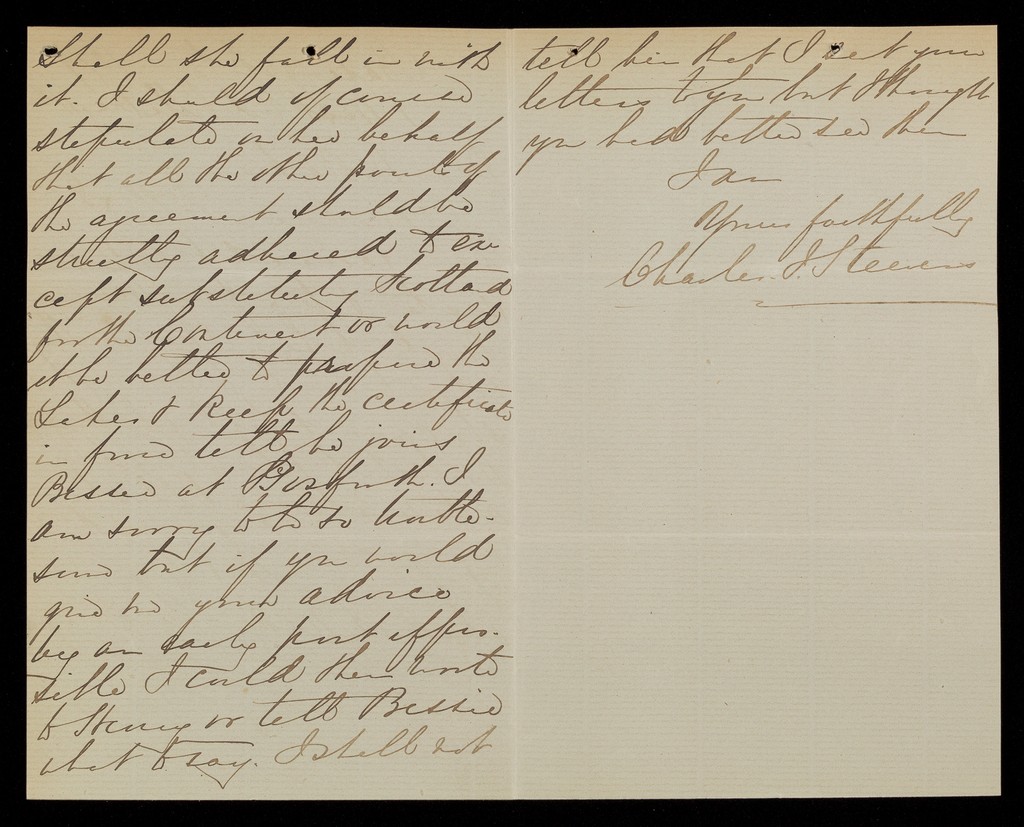 Shall she fall in with
it. I should of course
stipulate on her behalf
that all the other points of
the agreement should be
strictly adhered to ex
cept substituting Scotland
for the Continent or would
it be better to propose the
Lakes & keep the certificate
in force till he joins
Bessie at Gosforth. I
am sorry to be so trouble-
some but if you would
give me your advice
by an early post if pos-
sible I could then write
to Henry or tell Bessie
what to say. I shall not
tell him that I sent your
letters to you but I thought
you had better see them
I am
Yours faithfully
Charles J. Steevens